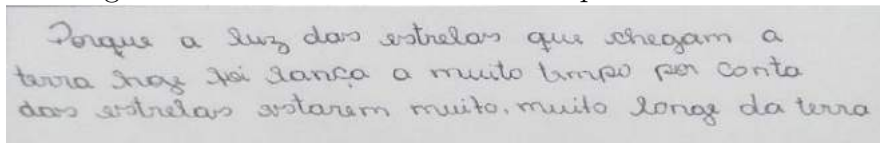 Porque a luz das estrelas que chegam a
terra hoje foi lança a muito tempo por conta
das estrelas estarem muito, muito longe da terra